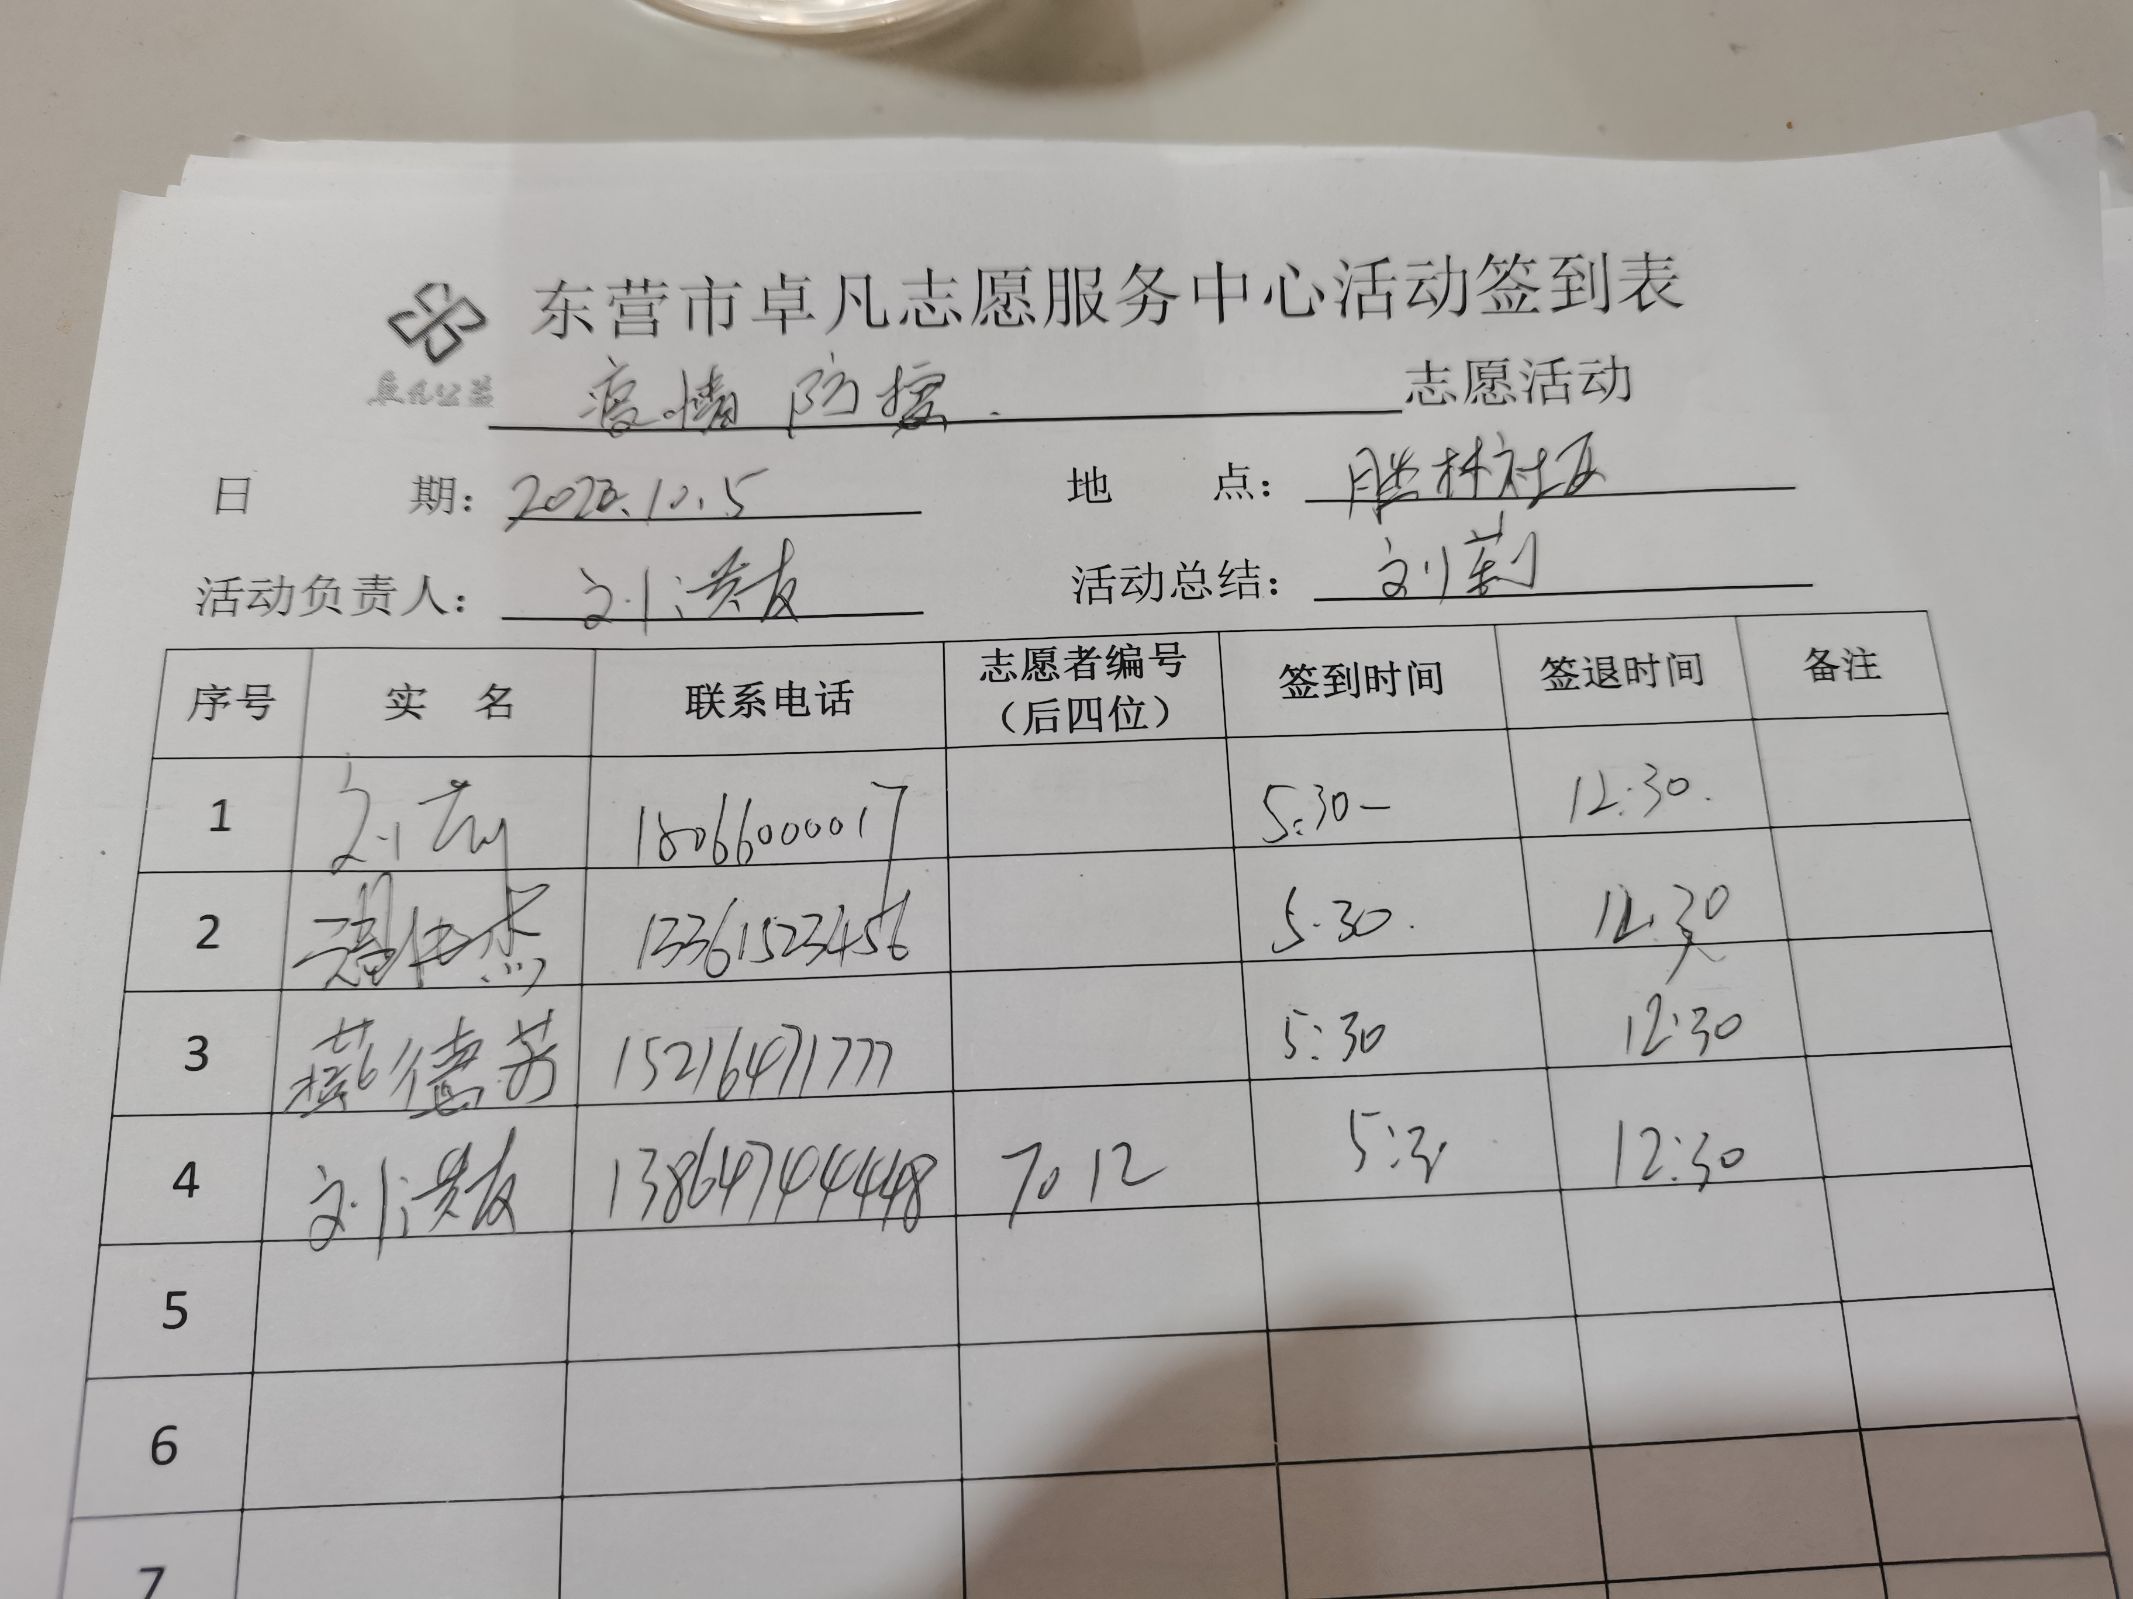 东营市卓凡志愿服务中心活动签到表
卓凡公益
疫情防控 志愿活动
日 期: 2022.10.5 地 点: 胜林社区
活动负责人: 刘洪友 活动总结: 刘莉
序号 实 名 联系电话 志愿者编号(后四位) 签到时间 签退时间 备注
1 刘 18066000017 5:30- 12:30.
2 杰 13361523456 5:30. 12:30
3 燕德芳 15216471777 5:30 12:30
4 刘洪友 13864744448 7012 5:30 12:30
5
6
7